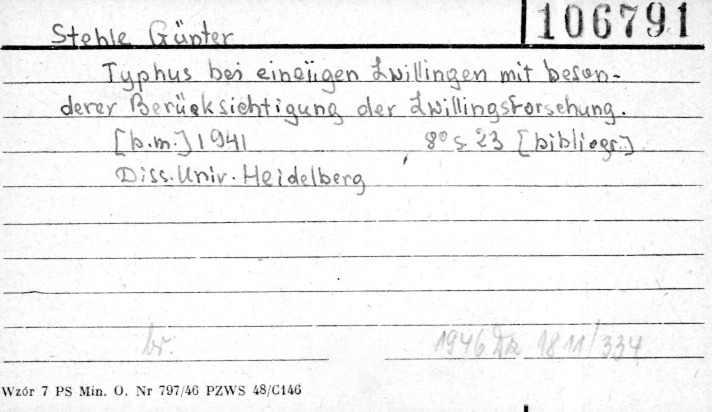 106791
Stehle Günter
Typhus bei eineiigen Zwillingen mit beson-
derer Berücksichtigung der Zwillingsforschung.
[b.m.] 1941 8° s. 23 [bibliogr.]
Diss. Univ. Heidelberg
br. 1946 Dx 1811/334
Wzór 7 PS Min. O. Nr 797/46 PZWS 48/C146